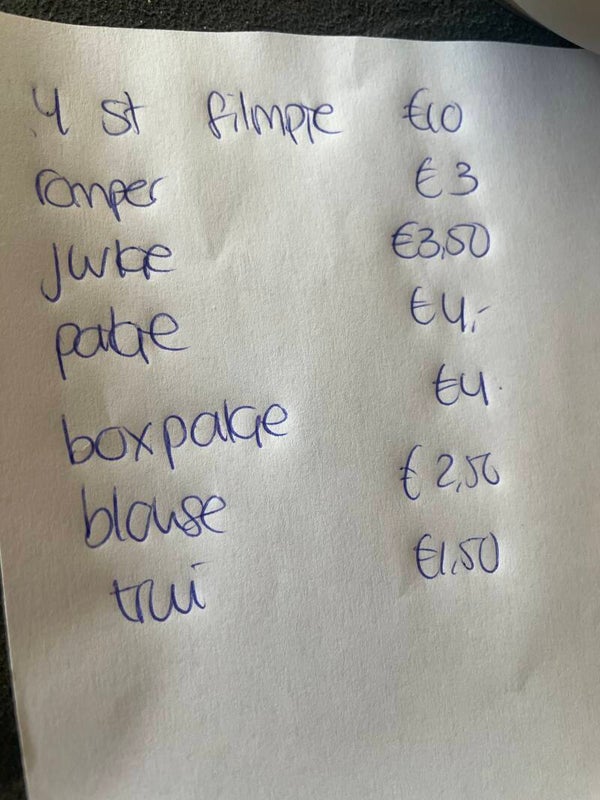 4 st filmpje €10
romper €3
jurkje €3,50
pakje €4,-
boxpakje €4.
blouse €2,50
trui €1,50